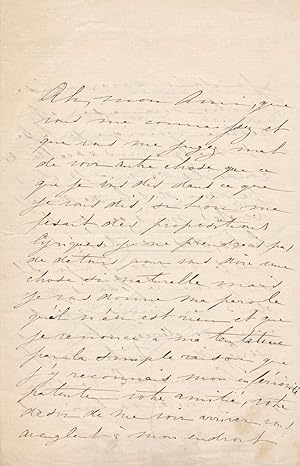 Ah, mon Ami, que
vous me connaissez et
que vous me jugez mal
de voir autre chose que ce
que je vous dis dans ce que
je vous dis! si l'on me
fesait des propositions
lyriques je ne prendrais pas
de détours pour vous dire une
chose si naturelle mais
je vous donne ma parole
qu'il n'en est rien et que
je renonce à ma tentative
par la simple raison que
j'y reconnais mon infériorité
patente votre amitié, votre
désir de me voir arriver vous
aveuglent à mon endroit